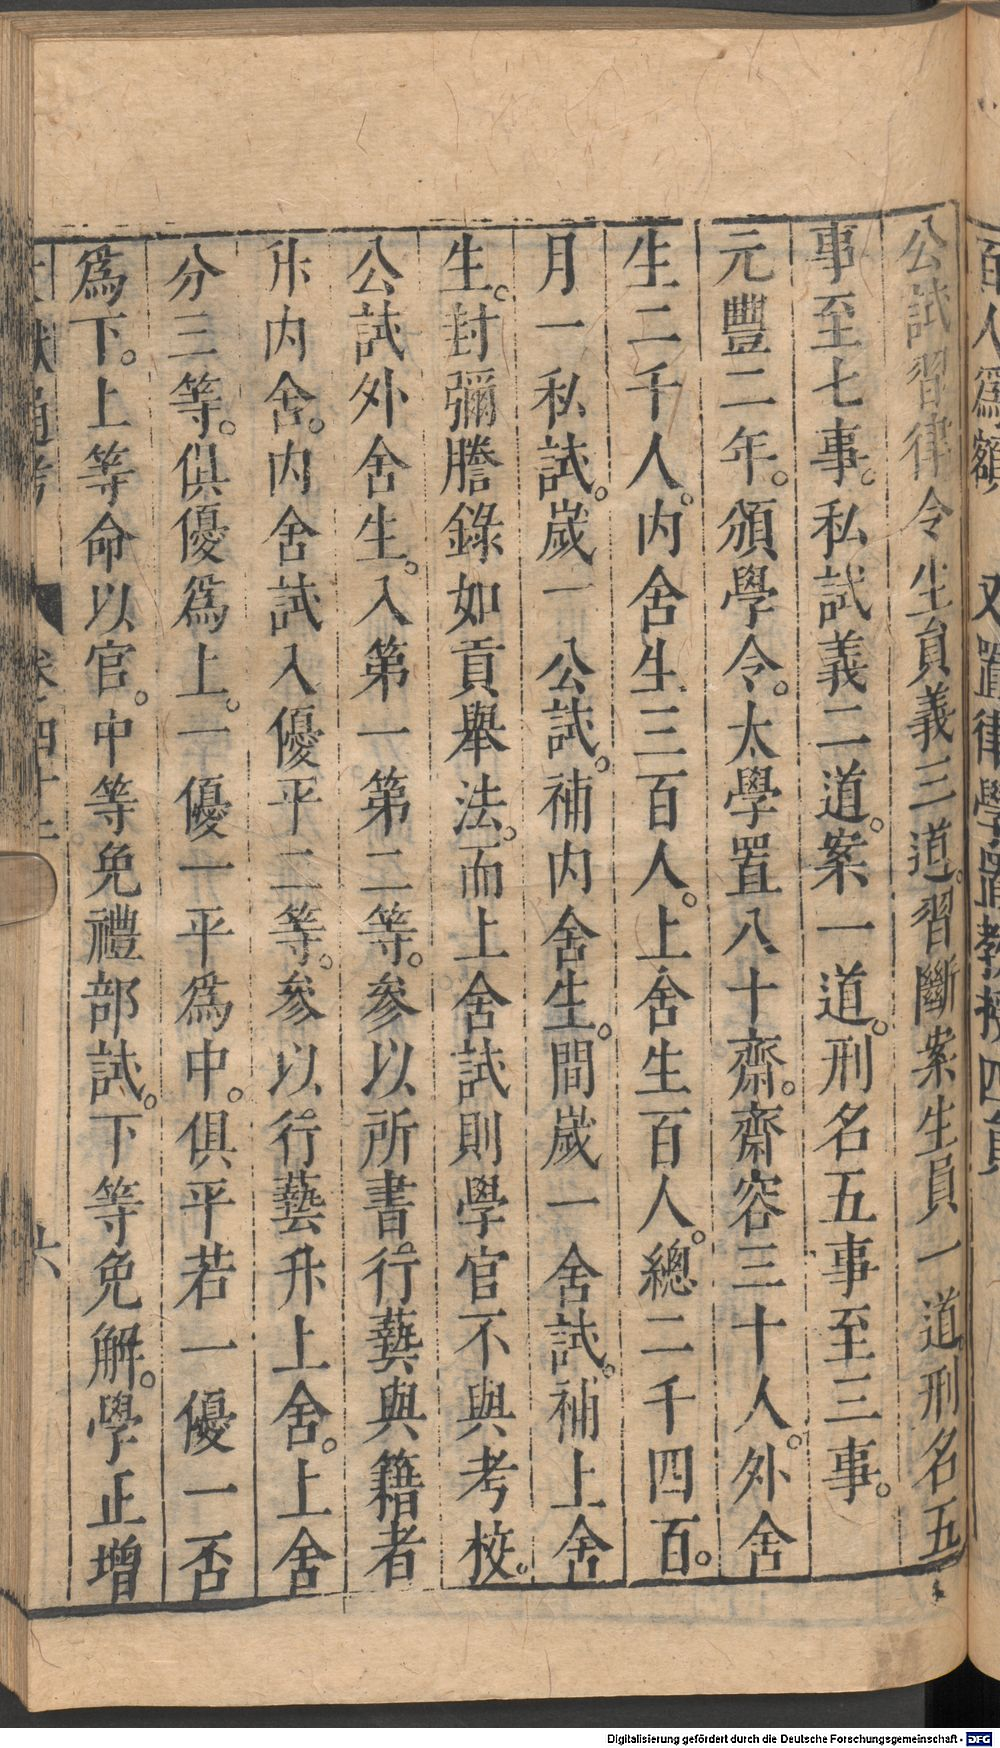 百人爲額　又置律學置教授四員
公試習律令生員義三道。習斷案生員一道刑名五
事至七事。私試義二道。案一道。刑名五事至三事。
元豐二年。頒學令。太學置八十齋。齋容三十人。外舍
生二千人。内舍生三百人。上舍生百人。總二千四百。
月一私試。歲一公試。補内舍生。間歲一舍試。補上舍
生。封彌謄錄如貢舉法。而上舍試則學官不與考校。
公試外舍生。入第一第二等。參以所書。行藝與籍者
升内舍。内舍試入優平二等。參以行藝升上舍。上舍
分三等。俱優爲上。一優一平爲中。俱平若一優一否
爲下。上等命以官。中等免禮部試。下等免解。學正增
文獻通考　卷之四十二　六
Digitalisierung gefördert durch die Deutsche Forschungsgemeinschaft - DFG